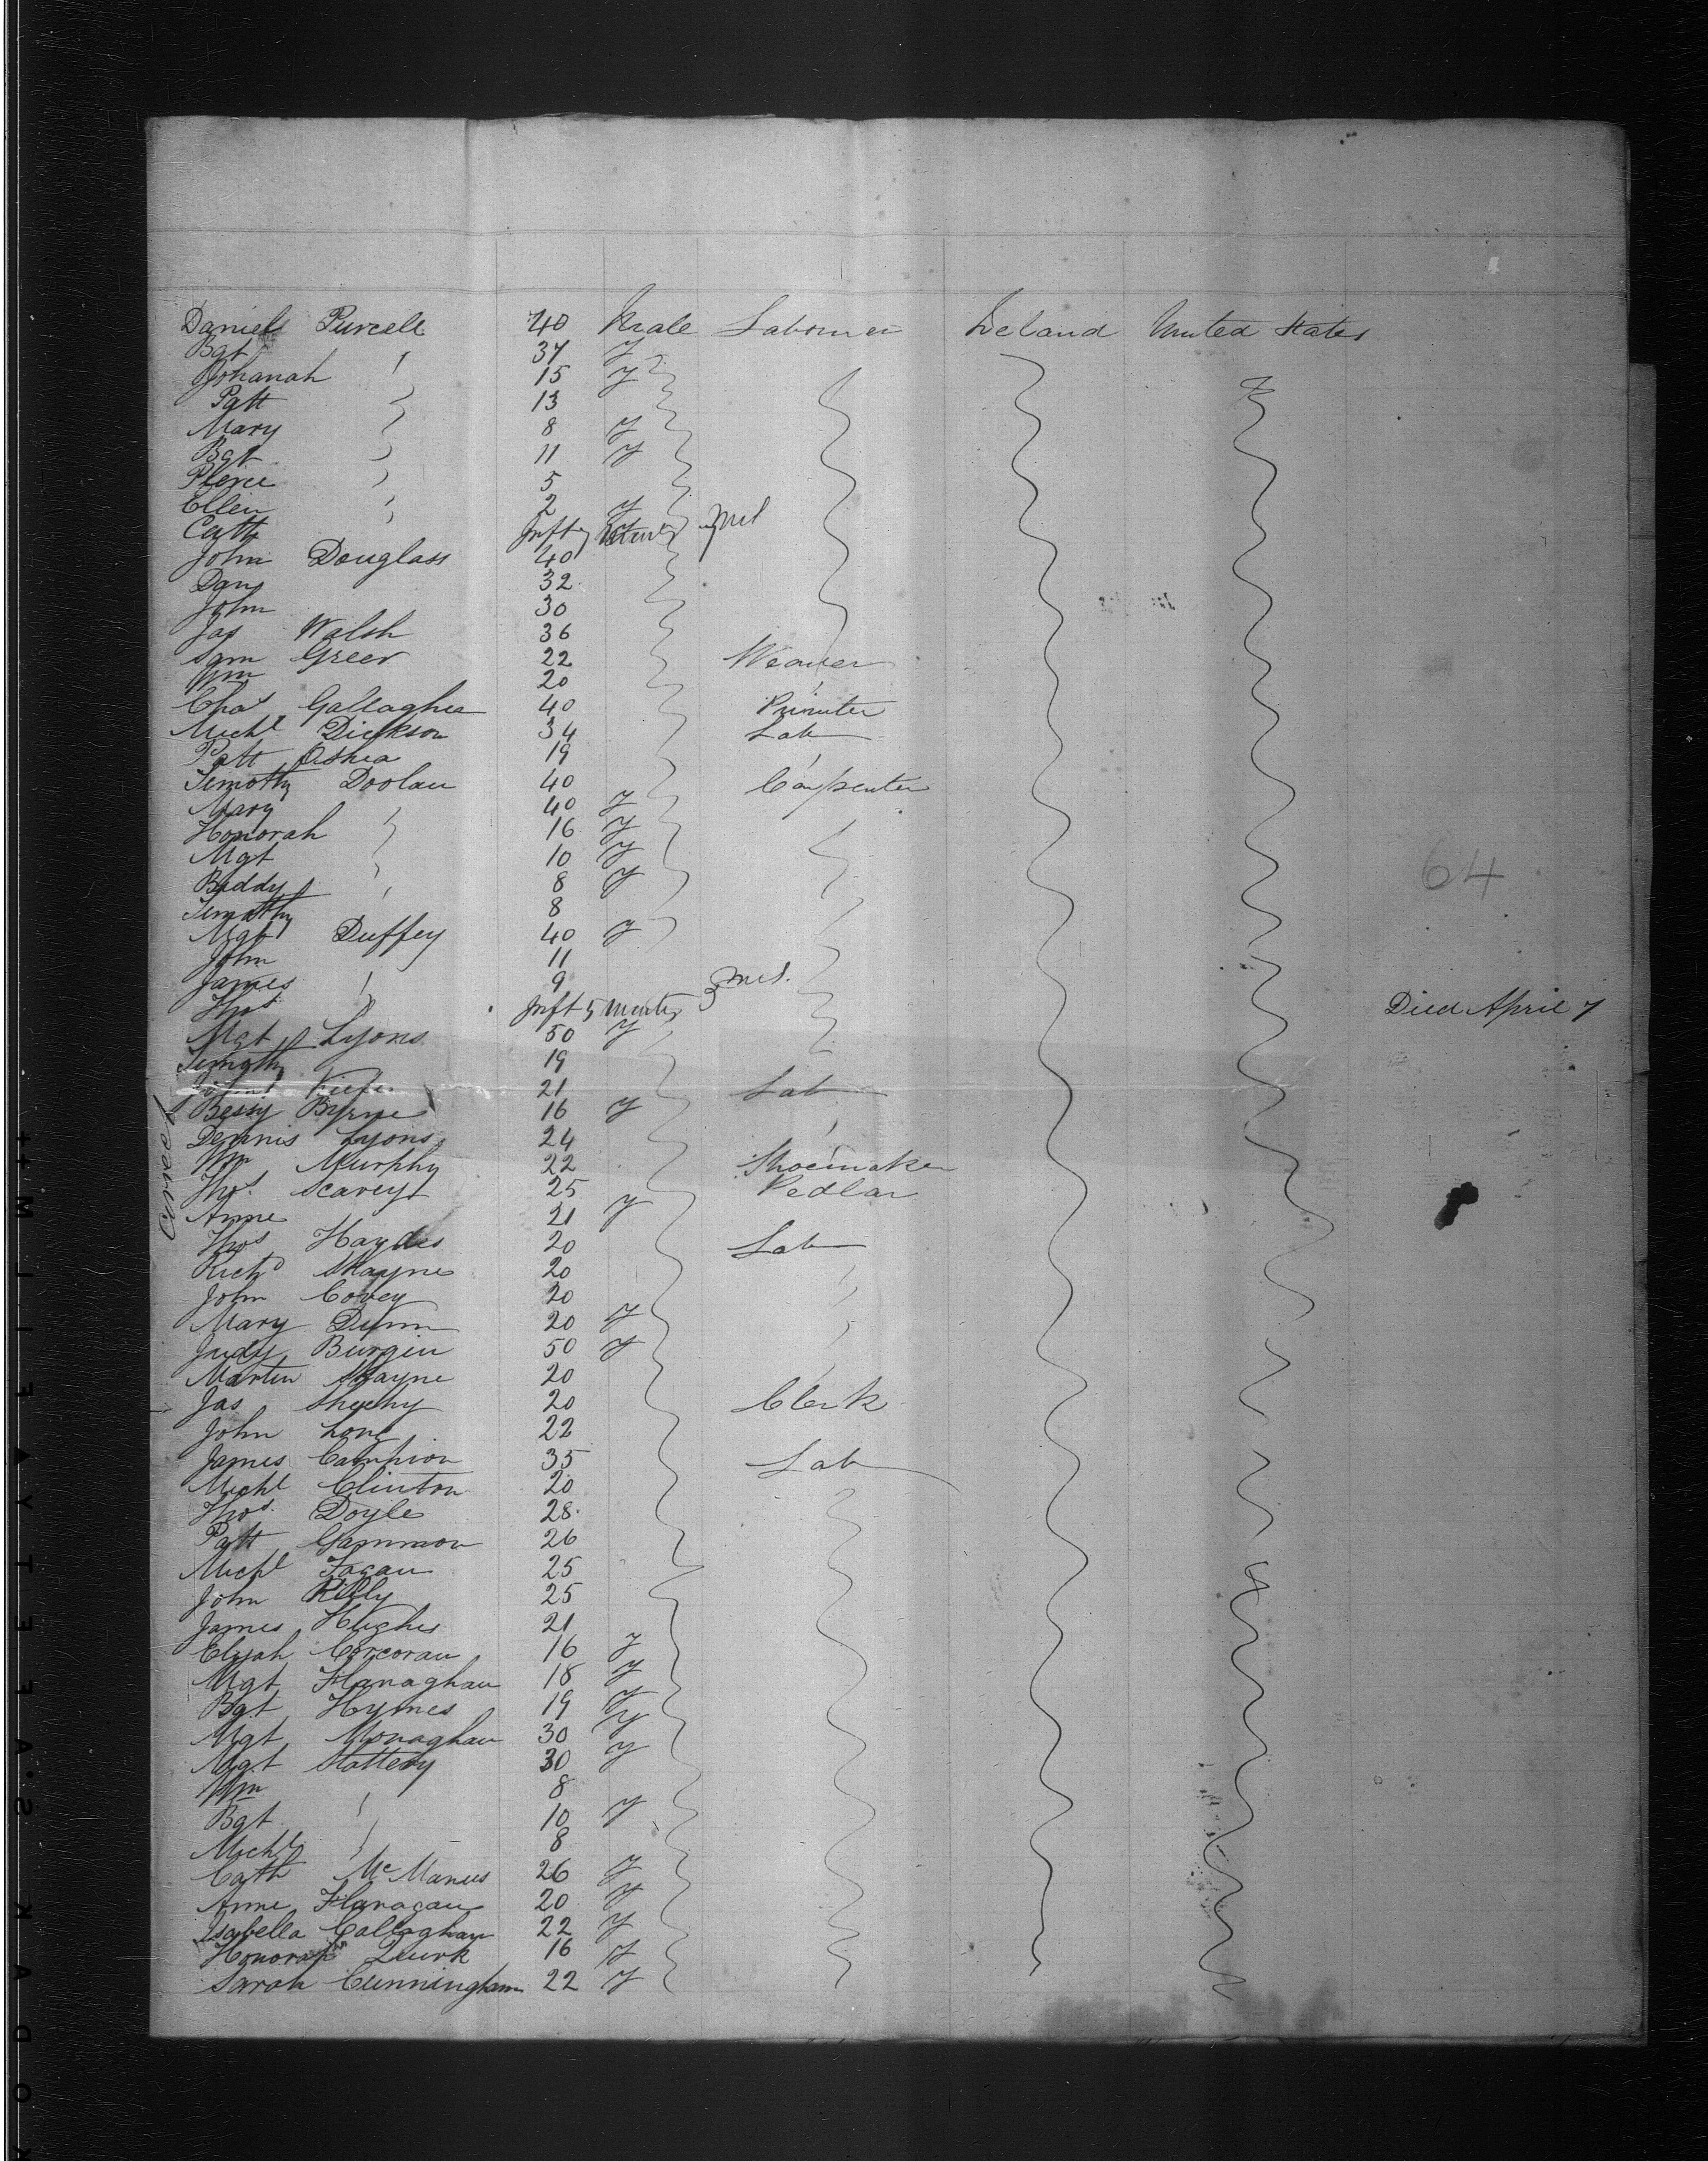 Daniel Purcell 40 Male Labourer Ireland United States
Bgt " 37 f
Johanah " 15 f
Patt " 13
Mary " 8 f
Bgt " 11 f
Pierce " 5
Ellen " 2 f
Cath Inft
John Douglass 40
Dan 32
John 30
Jas Walsh 36
Sam Greer 22 Weaver
Wm 20 "
Chas Gallagher 40 Printer
Michl Dickson 34 Lab
Patt Oshea 19 "
Timothy Doolan 40 Carpenter
Mary " 40 f
Honorah " 16 f
Mgt " 10 f
Biddy " 8 f
Timothy 8
Mgt Duffey 40 f
John 11
James " 9
Thos " Inft 5 Months Died April 7
Mgt Lyons 50 f
Timothy 19
21 Lab
Bessy Byrne 16 f
Dennis Lyons 24 "
Wm Murphy 22 Shoemaker
Thos 25 Pedlar
Anne 21 f
Thos Haydes 20 Lab
Richd Shayne 20 "
John Covey 20 "
Mary Dunn 20 f
Judy Burgin 50 f
Martin Shayne 20
Jas Sheehy 20 Clerk
John Long 22
James Campion 35 Lab
Michl Clinton 20
Thos Doyle 28
Patt Gammon 26
Michl Fagan 25
John Rilly 25
James Hughes 21
Elizah Corcoran 16 f
Mgt Flanaghan 18 f
Bgt Hymes 19 f
Mgt Monaghan 30 f
Mgt Slattery 30 f
Wm 8
Bgt " 10 f
Michl " 8
Cath McManus 26 f
Anne Flanagan 20 f
Isabella Callaghan 22 f
Honorah 16 f
Sarah Cunningham 22 f
64